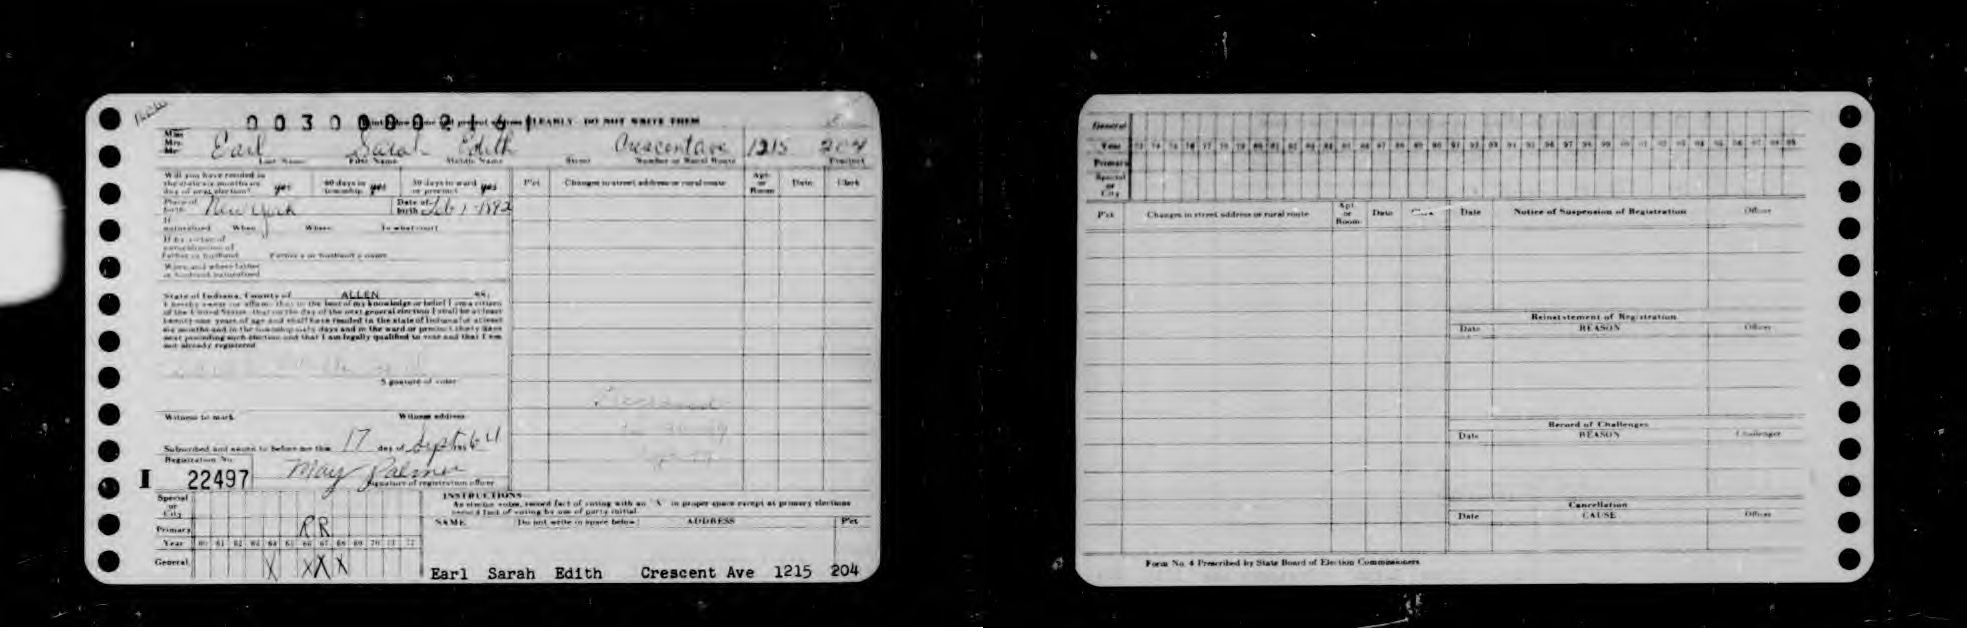 003000002161
CLEARLY - DO NOT WRITE THEM
Miss
Mrs.
Mr.
Earl Sarah Edith Crescent Ave 1215 204
Last Name First Name Middle Name Street Number or Rural Route Precinct
Will you have resided in
the state six months on
day of next election? yes 60 days in
township yes 30 days in ward
or precinct yes
P'ct Changes in street address or rural route Apt.
or
Room Date Clerk
Place of
birth New York Date of
birth Feb 1-1892
If
naturalized When Where In what court
If by virtue of
naturalization of
Father or husband Father's or husband's name
When and where father
or husband naturalized
State of Indiana, County of ALLEN SS:
I hereby swear (or affirm) that to the best of my knowledge or belief I am a citizen
of the United States, that on the day of the next general election I shall be at least
twenty-one years of age and shall have resided in the state of Indiana for at least
six months and in the township sixty days and in the ward or precinct thirty days
next preceding such election and that I am legally qualified to vote and that I am
not already registered
Signature of voter
Witness to mark Witness address
Subscribed and sworn to before me this 17 day of Sept 1964
Registration No.
I 22497 May Palmer
Signature of registration officer
Deceased
INSTRUCTIONS
As elector votes, record fact of voting with an "X" in proper space except at primary elections
record fact of voting by use of party initial
NAME (Do not write in space below) ADDRESS P'ct
Special
or
City
Primary R R
Year 60 61 62 63 64 65 66 67 68 69 70 71 72
General X X X X
Earl Sarah Edith Crescent Ave 1215 204
General
Year 73 74 75 76 77 78 79 80 81 82 83 84 85 86 87 88 89 90 91 92 93 94 95 96 97 98 99 00 01 02 03 04 05 06 07 08 09
Primary
Special
or
City
P'ct Changes in street address or rural route Apt
or
Room Date Clerk Date Notice of Suspension of Registration Officer
Reinstatement of Registration
Date REASON Officer
Record of Challenges
Date REASON Challenger
Cancellation
Date CAUSE Officer
Form No. 4 Prescribed by State Board of Election Commissioners